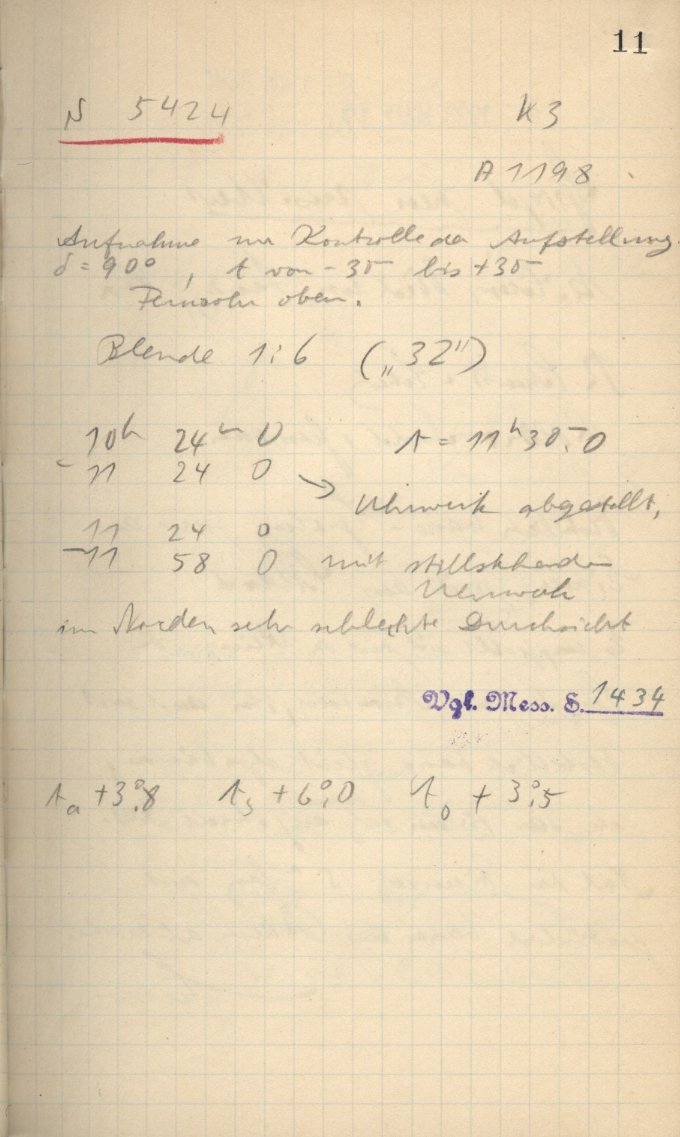 11
N 5424 K3
A 1198
Aufnahme zur Kontrolle der Aufstellung.
δ = 90°, t von - 35 bis + 35
Fernrohr oben.
Blende 1:6 („32")
10h 24m 0 t = 11h 30m.0
- 11 24 0 →
Uhrwerk abgestellt,
11 24 0
- 11 58 0 mit stillstehenden
Uhrwerk
im Norden sehr schlechte Durchsicht
Vgl. Mess. S. 1434
ta +3°.8 ts +6°.0 to +3°.5